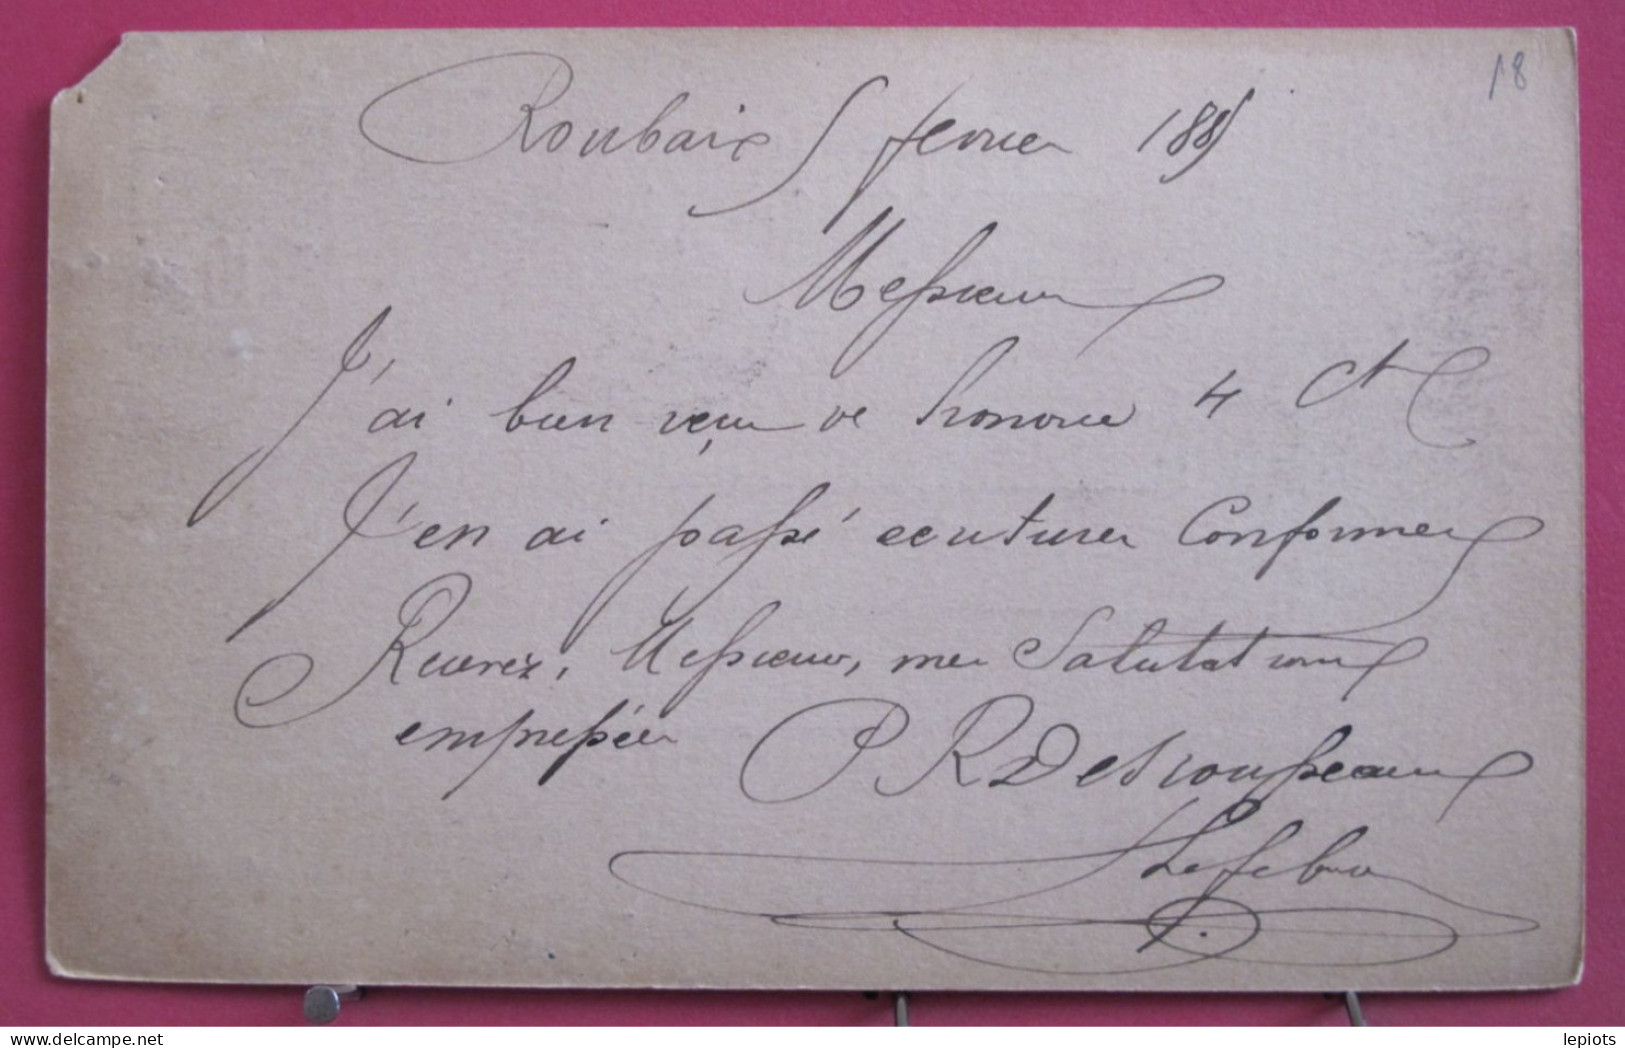 18
Roubaix 5 février 1885
Messieurs
J'ai bien reçu votre honorée 4 Ct
J'en ai passé écritures conformes
Recevez, Messieurs, mes Salutations
empressées P R Desrousseaux
Lefebvre
lepiots